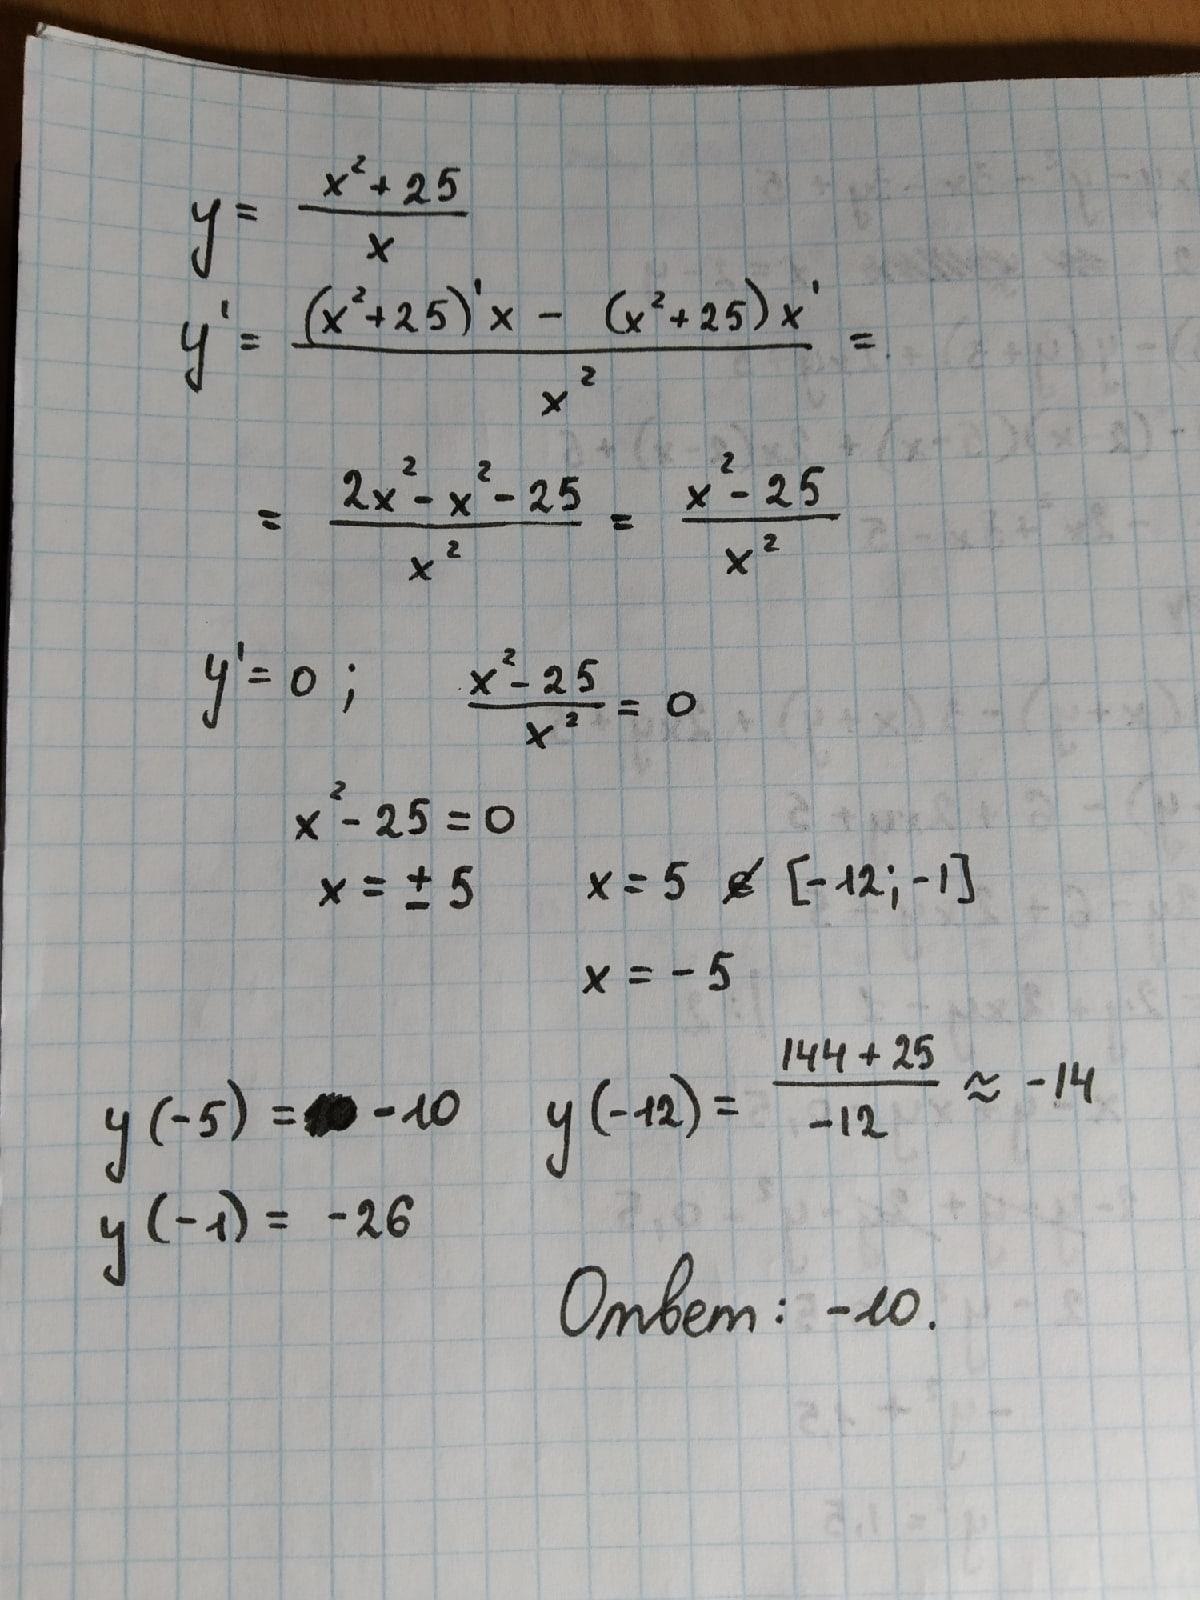 y = (x² + 25) / x
y' = ((x² + 25)' x - (x² + 25) x') / x² =
= (2x² - x² - 25) / x² = (x² - 25) / x²
y' = 0 ; (x² - 25) / x² = 0
x² - 25 = 0
x = ± 5 x = 5 ∉ [-12; -1]
x = - 5
y (-5) = -10 y (-12) = (144 + 25) / -12 ≈ -14
y (-1) = -26
Ответ: -10.